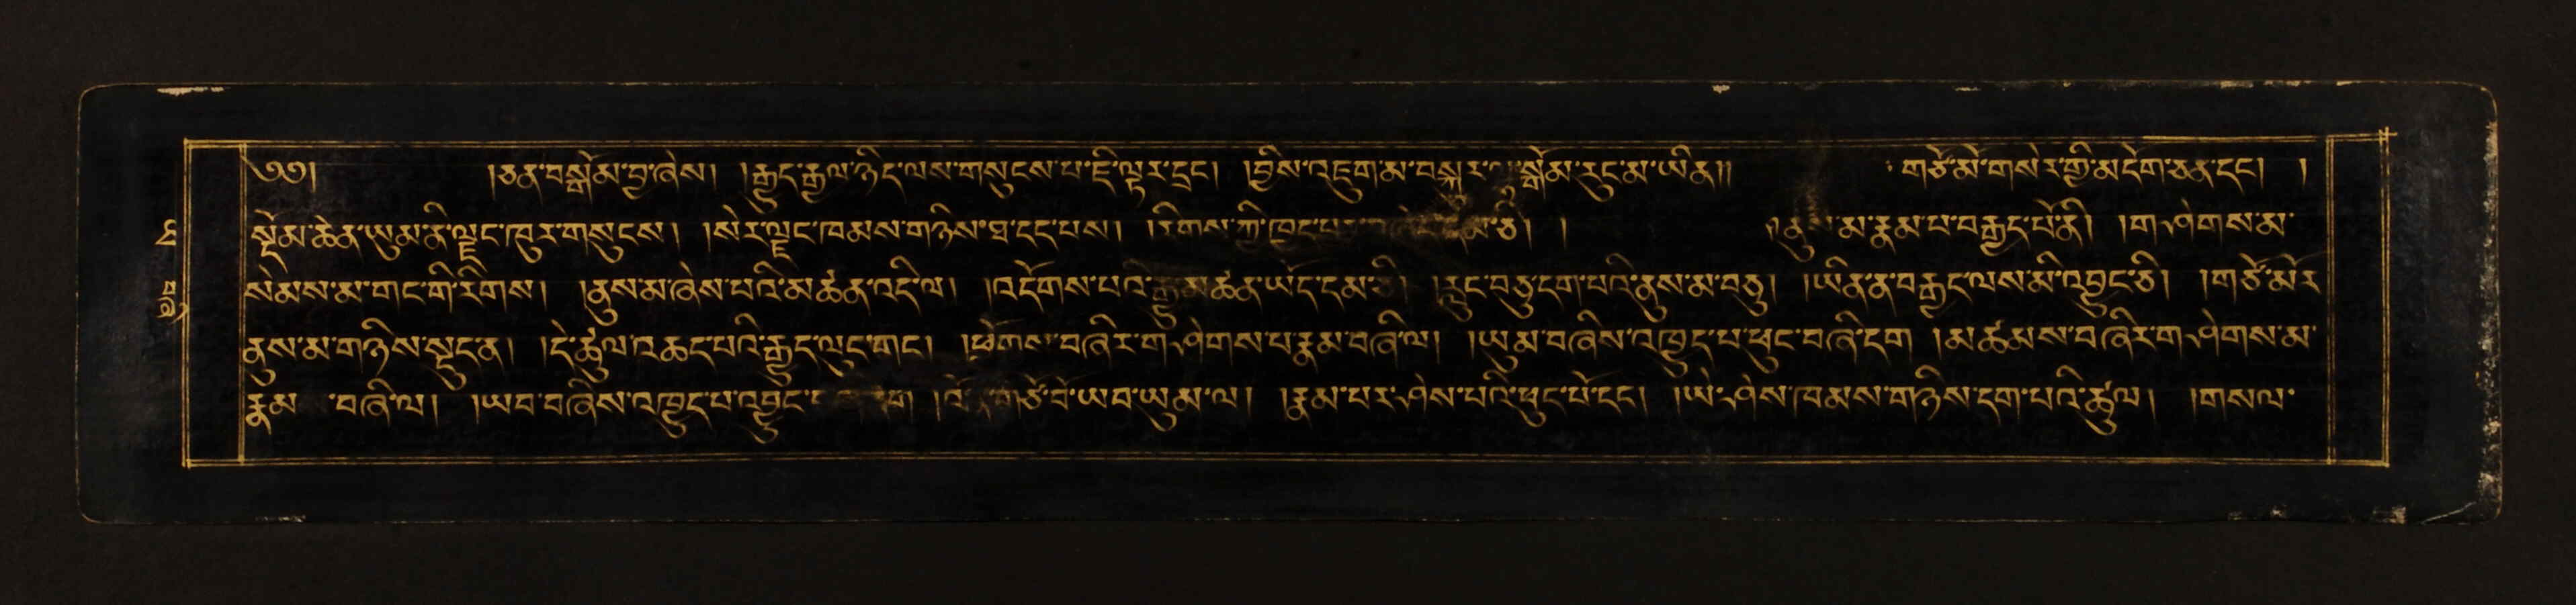 ༄༅། །ཅན་བསྒོམ་བྱ་ཞེས། །རྒྱུད་རྒྱལ་ཉིད་ལས་གསུངས་པ་ཇི་ལྟར་དྲང། །བྱིས་འཇུག་མ་བསྐུར་ལ་སྒོམ་རུང་མ་ཡིན།། གཙོ་མོ་གསེར་གྱི་མདོག་ཅན་དང། །
སྡོམ་ཆེན་ཡུམ་ནི་ལྗང་ཁུར་གསུངས། །སེར་ལྗང་ཁམས་གཉིས་ཐ་དད་པས། །རིགས་ཀྱི་ཁྱད་པར་ ཅི། ། ནུས་མ་རྣམ་པ་བརྒྱད་པོ་ནི། །གཤེགས་མ་
སེམས་མ་གང་གི་རིགས། །ནུས་མ་ཞེས་པའི་མཚན་འདི་ལ། །འདོགས་པའི་རྒྱུ་མཚན་ཡོད་དམ་ཅི། །རླུང་བཅུ་དག་པའི་ནུས་མ་བཅུ། །ཡིན་ན་བརྒྱད་ལས་མི་འབྱུང་ཅི། །གཙོ་མོར
ནུས་མ་གཉིས་སྡུད་ན། །དེ་ཚུལ་འཆད་པའི་རྒྱུད་ལུང་གང། །ཕྱོགས་བཞིར་གཤེགས་པ་རྣམ་བཞི་ལ། །ཡུམ་བཞིས་འཁྱུད་པ་ཕུང་བཞི་དག །མཚམས་བཞིར་གཤེགས་མ་
རྣམ་བཞི་ལ། །ཡབ་བཞིས་འཁྱུད་པ་འབྱུང་ །འོ་ན་གཙོ་བོ་ཡབ་ཡུམ་ལ། །རྣམ་པར་ཤེས་པའི་ཕུང་པོ་དང། །ཡེ་ཤེས་ཁམས་གཉིས་དག་པའི་ཚུལ། །གསལ་